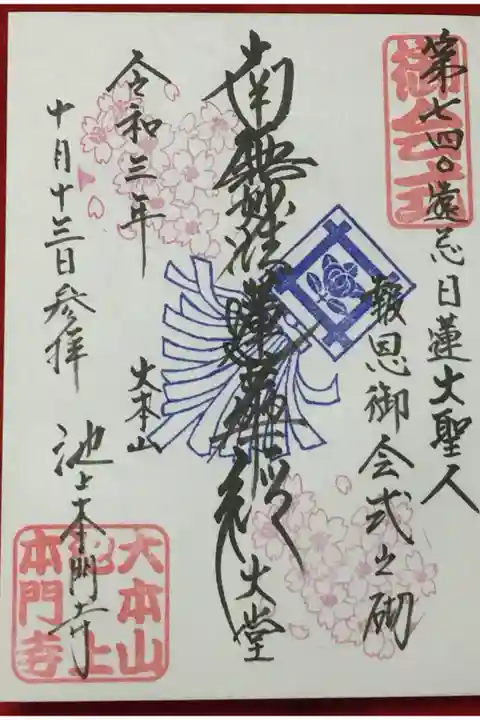 第七四〇遠忌日蓮大聖人
報恩御会式之砌
御会式
南無妙法蓮華経
大堂
令和三年
十月十三日参拝
大本山
池上本門寺
大本山
池上
本門寺